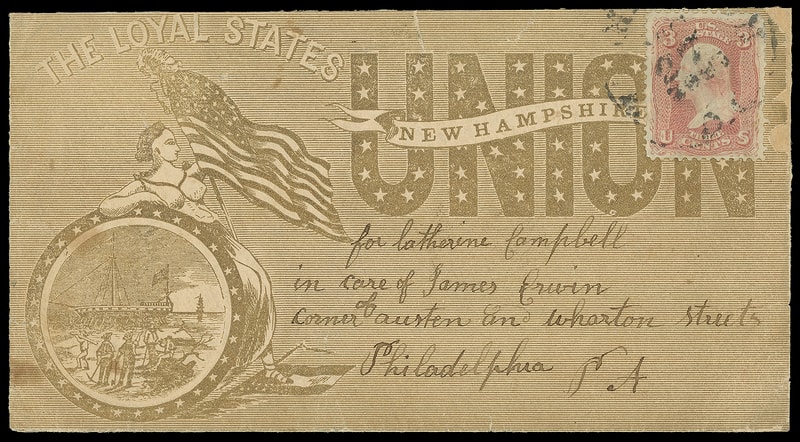 THE LOYAL STATES
UNION
NEW HAMPSHIR
3 U.S. 3
POSTAGE
U S
CENTS
for Catherine Campbell
in care of James Erwin
corner of austen and wharton streets
Philadelphia PA